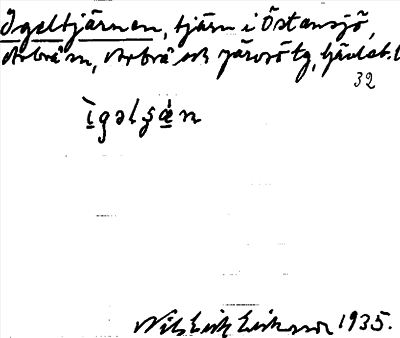 Igeltjärnen, tjärn i Östansjö,
Arbrå sn, Arbrå och Järvsö tg, Hävleb. l
32
ìgəlʂæ̀n
Nils Erik Eriksson 1935.